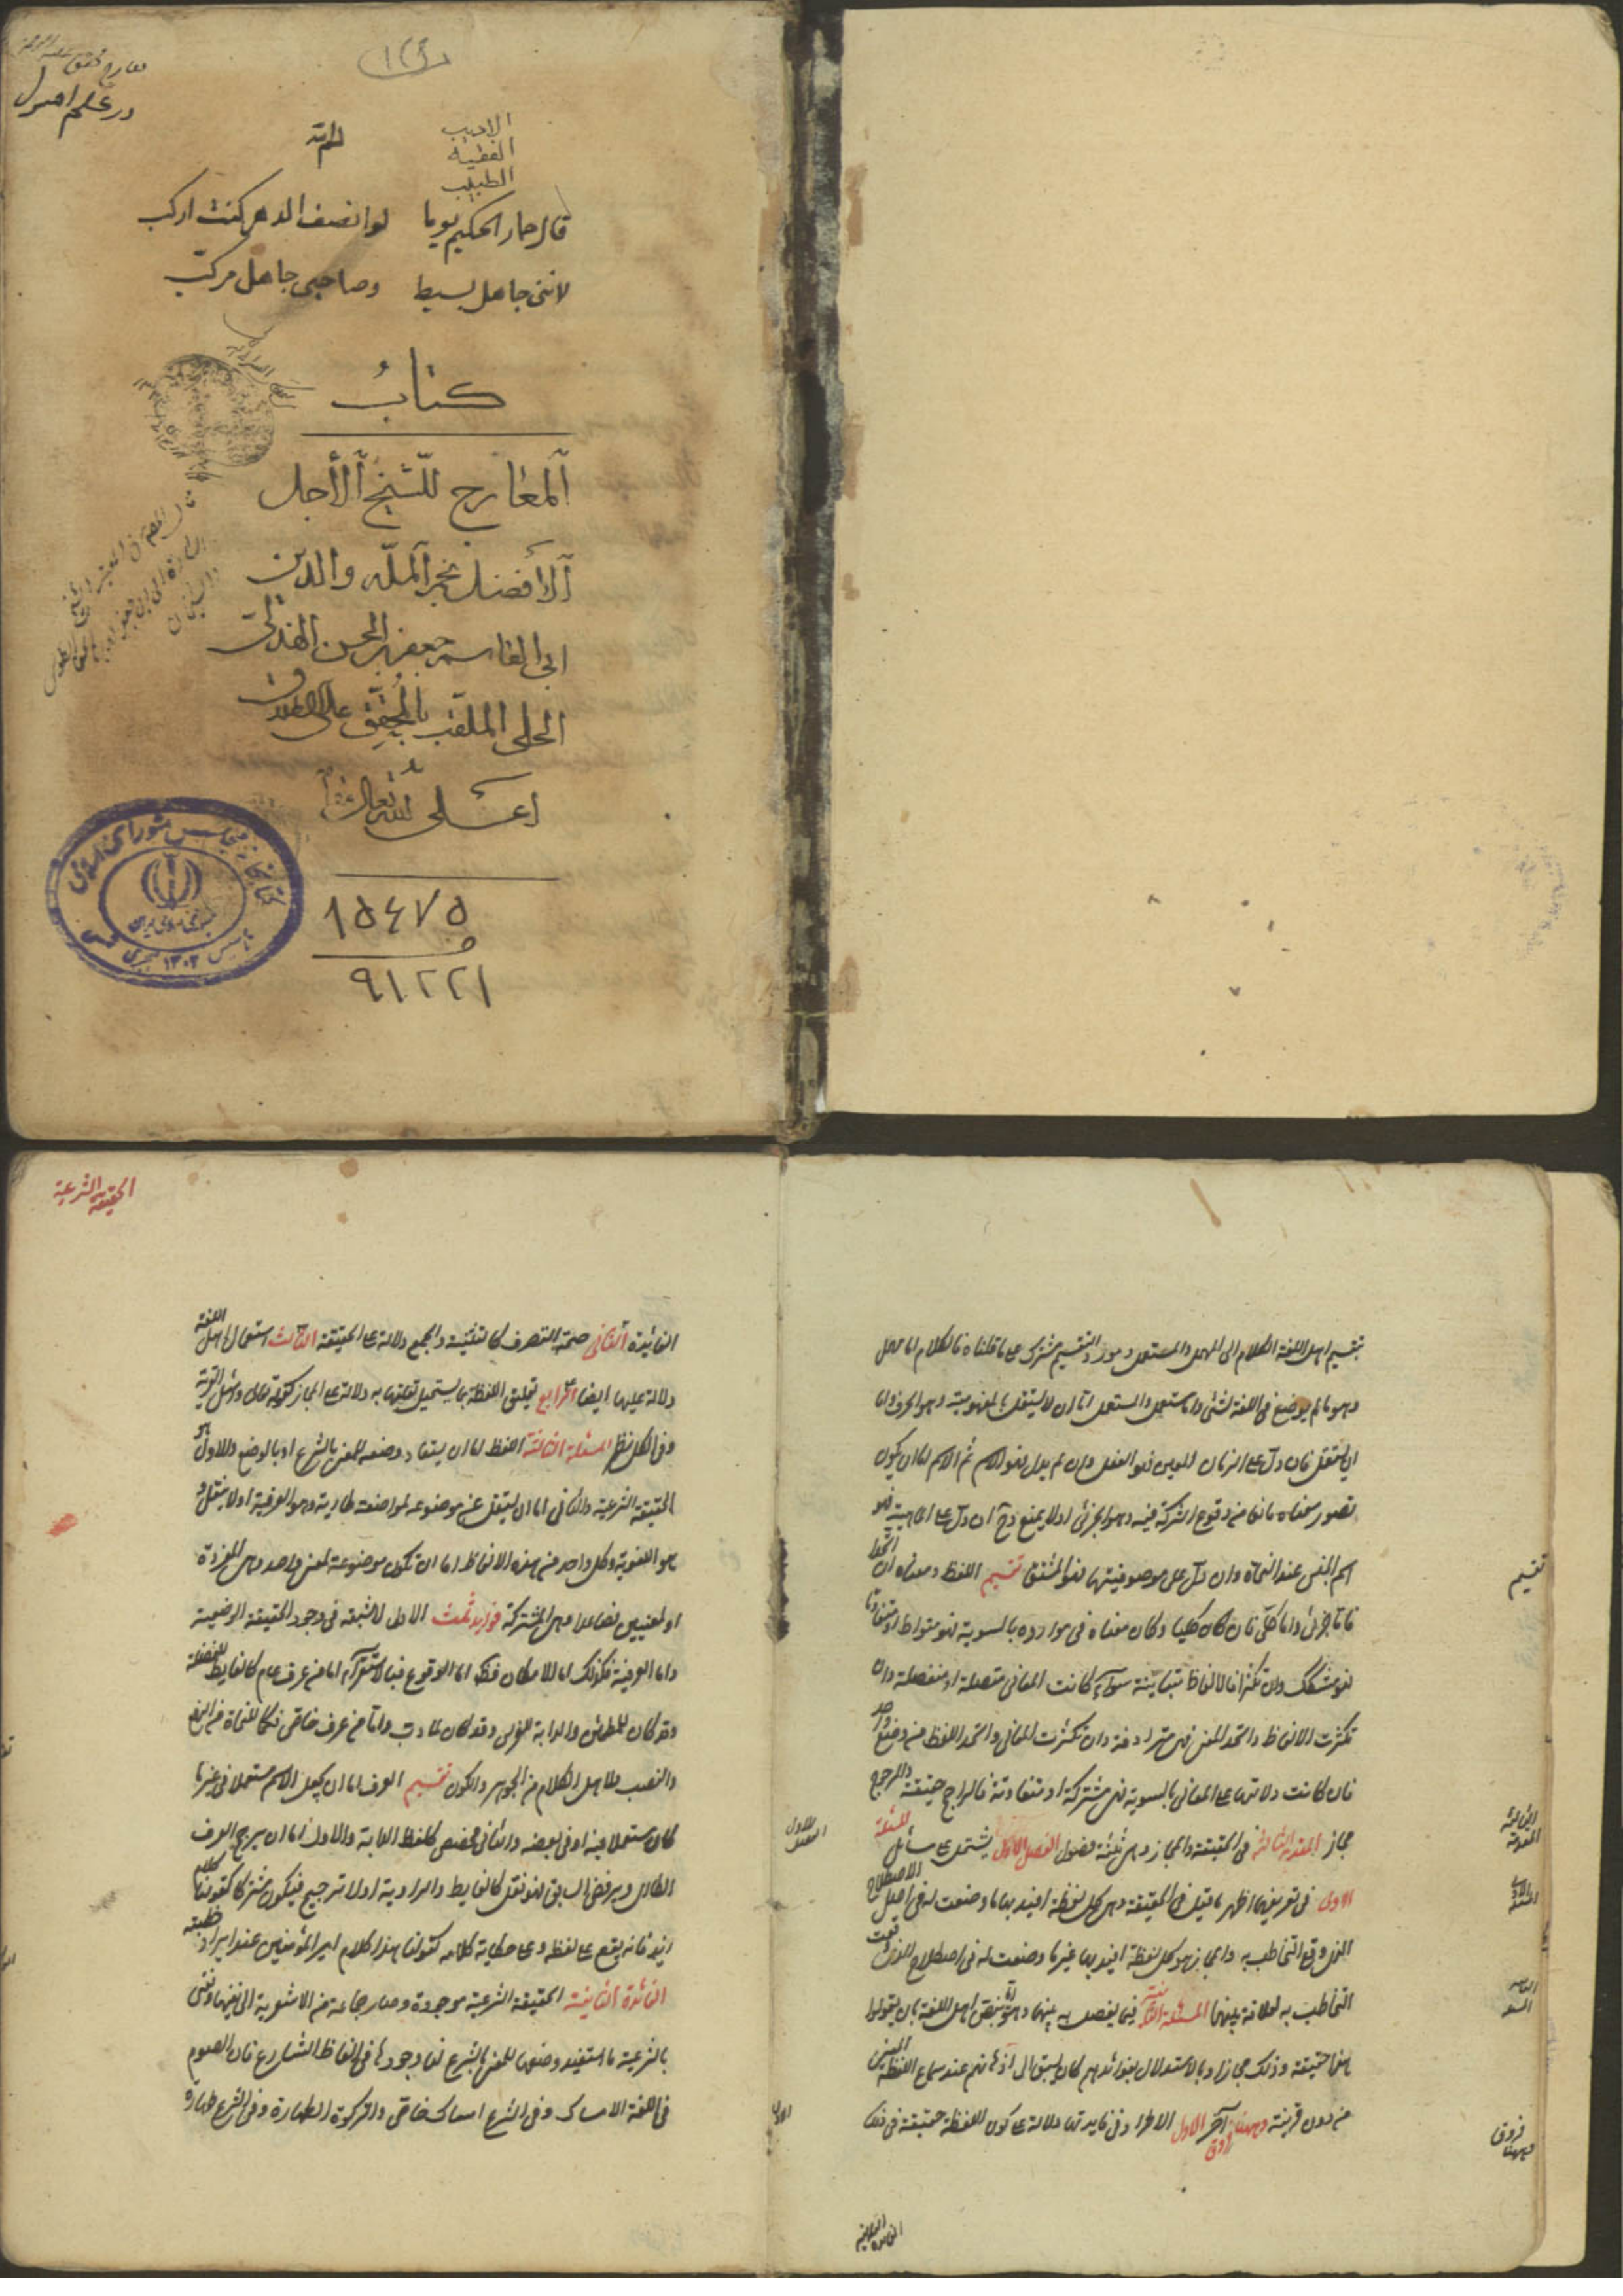 در علم اصول
الادیب
الفقیه
الطبیب
قال حمار الحکیم یوما لو انصف الدهر کنت ارکب
لاننی جاهل بسیط وصاحبی جاهل مرکب
کتابُ
المعارج للشیخ الأجل
الأفضل نجم الملّه والدین
ابی القاسم جعفر بن الحسن الهذلی
الحلی الملقب بالمحقق علی الاطلاق
اعلی الله تعالی
کتابخانه مجلس شورای اسلامی
تاسیس ۱۳۰۲ هجری
۱۵۴۷۵
۹۱۲۲۱
تقسیم اهل اللغة الکلام الی المهمل والمستعمل ومورد التقسیم مشترک علی ما قلناه فالکلام اما مهمل
وهو ما لم یوضع فی اللغة لشئ واما مستعمل والمستعمل اما ان لا یستقل بالمفهومیة وهو الحرف واما
ان یستقل فان دل علی الزمان المعین فهو الفعل وان لم یدل فهو الاسم ثم الاسم اما ان یکون
تصور معناه مانعا من وقوع الشرکة فیه وهو الجزئی اولا یمنع وح ان دل علی الماهیة فهو
اسم الجنس عند النحاة وان دل علی موصوفیتها فهو المشتق تقسیم اللفظ ومعناه ان اتحدا
فاما جزئی واما کلی فان کان کلیا وکان معناه فی موارده بالسویة فهو متواط او متفاوتا
فهو مشکک وان تکثرا فالالفاظ متباینة سواء کانت المعانی متصلة او منفصلة وان
تکثرت الالفاظ واتحد المعنی فهی مترادفة وان تکثرت المعانی واتحد اللفظ من وضع واحد
فان کانت دلالته علی المعانی بالسویة فهی مشترکة او متفاوتة فالراجح حقیقة والمرجوح
مجاز المقدمة الثالثة فی الحقیقة والمجاز وهی ثلثة فصول الفصل الاول یشتمل علی مسائل المسئلة
الاولی فی تعریفهما اظهر ما قیل فی الحقیقة هی کل لفظة افید بها ما وضعت له فی اصل الاصطلاح
الذی وقع التخاطب به والمجاز هو کل لفظة افید بها غیر ما وضعت له فی اصطلاح الذی وقعت
التخاطب به لعلاقة بینهما المسئلة الثانیة فیما یفصل به بینهما وهو بنص اهل اللغة بان یقولوا
هذا حقیقة وذلک مجاز او بالاستدلال بفوائدهم کان یسبق الی اذهانهم عند سماع اللفظة المعنی
من دون قرینة وههنا فروق آخر الاول الاطراد فی فایدتها دلالة علی کون اللفظة حقیقة فی تلک
تقسیم
فروق
وههنا
الحقیقة الشرعیة
الفائدة الثانی صحة التصرف کالتثنیة والجمع دلالة علی الحقیقة الثالث استعمال اهل اللغة
دلالة علیها ایضا الرابع تعلیق اللفظة بما یستحیل تعلیقها به دلالة علی المجاز کقوله تعالی واسئل القریة
وفی الکل نظر المسئلة الثالثة اللفظ اما ان یستفاد وضعه للمعنی بالشرع او بالوضع والاول هو
الحقیقة الشرعیة والثانی اما ان ینتقل عن موضوعه لمواضعة طاریة وهو العرفیة اولا ینتقل و
هو اللغویة وکل واحد من هذه الالفاظ اما ان تکون موضوعة لمعنی واحد وهی المفردة
او لمعنیین فصاعدا وهی المشترکة فواید ثلث الاول لا شبهة فی وجود الحقیقة الوضعیة
واما العرفیة فکذلک اما الامکان فظ واما الوقوع فبالاستقراء اما من عرف عام کالغایط للفضلة
وقد کان للمطمئن والدابة للفرس وقد کان لما دب واما من عرف خاص فکما للنحاة من الرفع
والنصب ولاهل الکلام من الجوهر والکون تقسیم العرف اما ان یجعل الاسم مستعملا فی غیر ما
کان مستعملا فیه او فی بعضه والثانی مخصص کلفظ الدابة والاول اما ان یرجح العرف
الطاری ویرفض السابق فهو نقل کالغایط والراویة اولا ترجیح فیکون مشترکا کقولنا کلام
زید فانه یقع علی لفظه وعلی حکایة کلامه کقولنا هذا کلام امیر المؤمنین عند ایراد خطبته
الفائدة الثانیة الحقیقة الشرعیة موجودة وصار جماعة من الاشعریة الی نفیها ونعنی
بالشرعیة ما استفید وضعها للمعنی بالشرع لنا وجودها فی الفاظ الشارع فان الصوم
فی اللغة الامساک وفی الشرع امساک خاص والزکوة الطهارة وفی الشرع طهارة